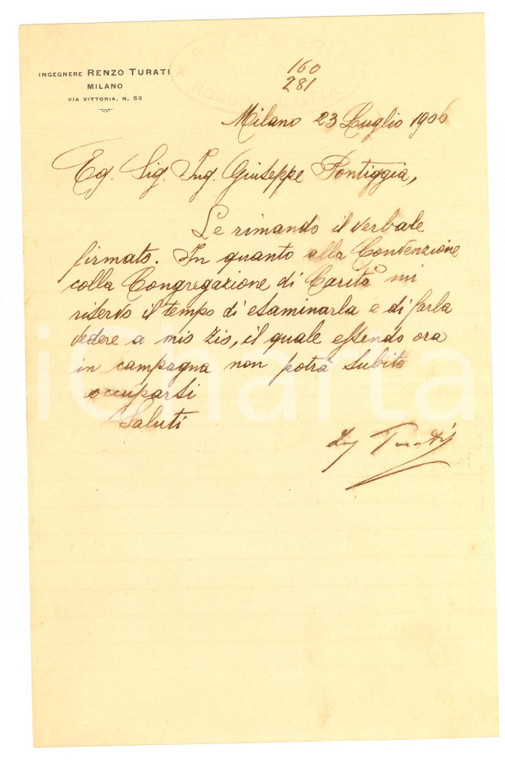 INGEGNERE RENZO TURATI
MILANO
VIA VITTORIA, N. 53
160
281
Milano 23 Luglio 1906
Eg. Sig. Ing. Giuseppe Pontiggia,
Le rimando il verbale
firmato. In quanto alla Convenzione
colla Congregazione di Carità mi
riservo il tempo di esaminarla e di farla
vedere a mio zio, il quale essendo ora
in campagna non potrà subito
occuparsi
Saluti
Ing Turati
iCharta